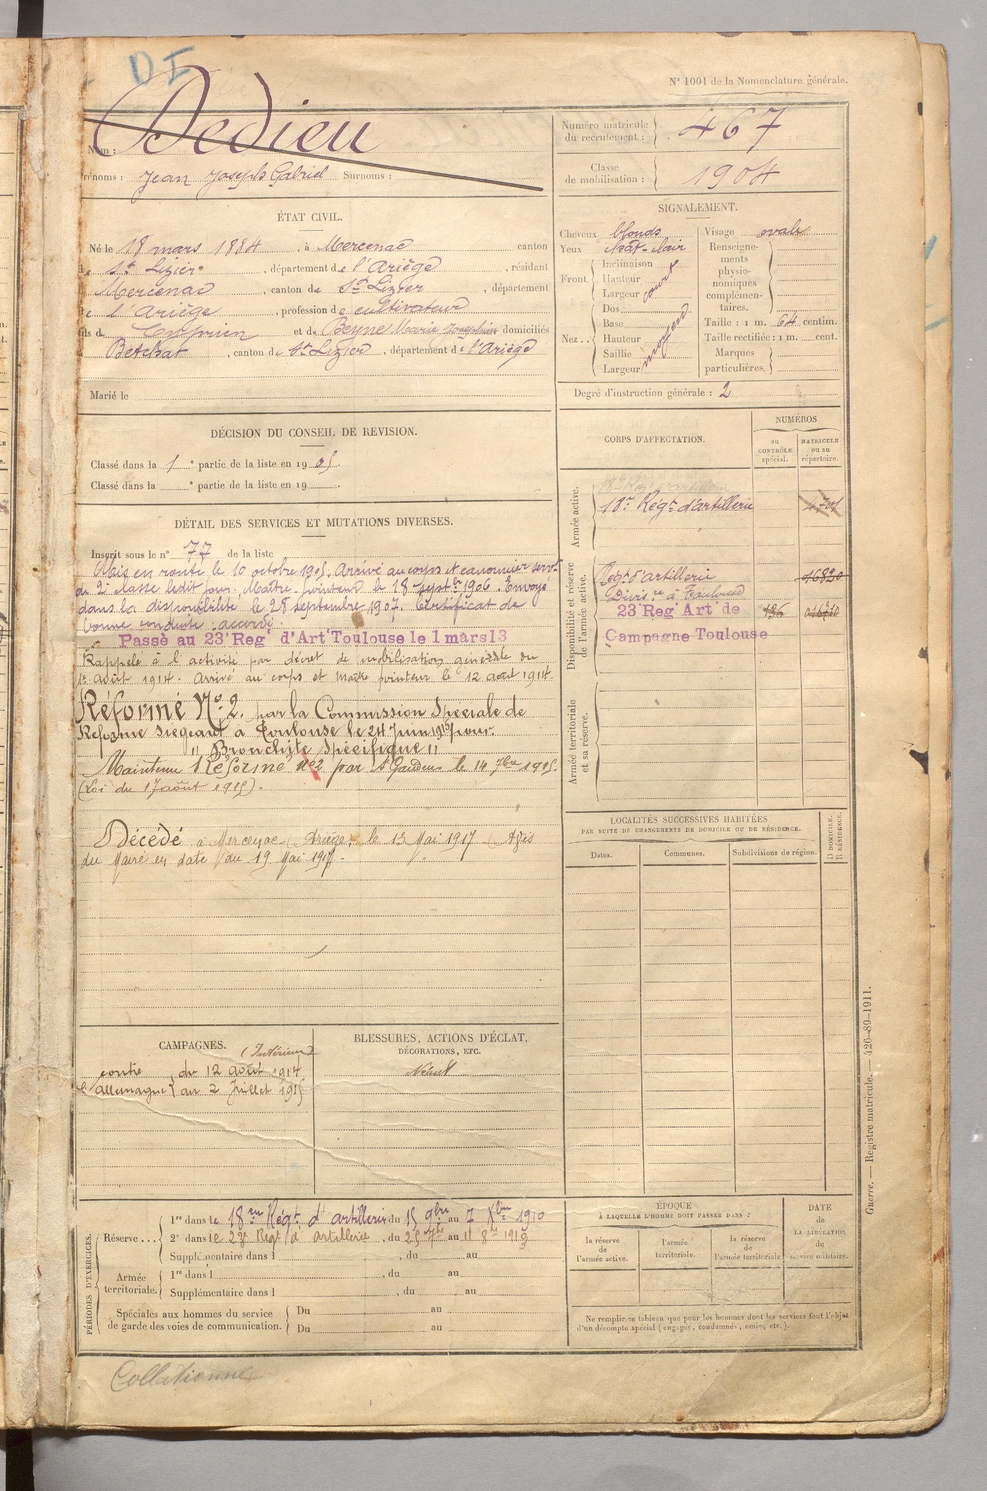 DI
N° 1001 de la Nomenclature générale.
Nom : Dedieu
Prénoms : Jean Joseph Gabriel Surnoms :
Numéro matricule du recrutement : 467
Classe de mobilisation : 1904
ÉTAT CIVIL.
Né le 18 mars 1884, à Mercenac canton
de St Lizier, département de l'Ariège, résidant
Mercenac, canton de St Lizier, département
de l'Ariège, profession de cultivateur
fils de Cyprien et de Beyne Marie Joséphine domiciliés
Betchat, canton de St Lizier, département de l'Ariège
Marié le
SIGNALEMENT.
Cheveux blonds Visage ovale
Yeux chât-clair
Front
Inclinaison
Hauteur
Largeur
court
Nez
Dos
Base
Hauteur
Saillie
Largeur
moyen
Renseignements physionomiques complémentaires.
Taille : 1 m. 64 centim.
Taille rectifiée : 1 m. cent.
Marques particulières.
Degré d'instruction générale : 2
DÉCISION DU CONSEIL DE REVISION.
Classé dans la 1e partie de la liste en 1905.
Classé dans la e partie de la liste en 19
DÉTAIL DES SERVICES ET MUTATIONS DIVERSES.
Inscrit sous le n° 77 de la liste
Mis en route le 10 octobre 1905. Arrivé au corps et canonnier servt
de 2e classe ledit jour. Maître pointeur le 18 septbre 1906. Envoyé
dans la disponibilité le 28 septembre 1907. Certificat de
bonne conduite : accordé.
Passé au 23e Reg' d'Art Toulouse le 1 mars 13
Rappelé à l'activité par décret de mobilisation générale du
1er août 1914. Arrivé au corps et maître pointeur le 12 août 1914.
Réformé No 2. par la Commission Spéciale de
Réforme siégeant à Toulouse le 24 Juin 1915 pour:
" Bronchite Spécifique "
Maintenu Réformé no2 par St Gaudens le 14 7bre 1915.
(Loi du 17 août 1915).
Décédé à Mercenac (Ariège) le 13 Mai 1917 Avis
du Maire en date du 19 Mai 1917.
CORPS D'AFFECTATION.
NUMÉROS
au CONTRÔLE spécial.
MATRICULE ou au répertoire.
Armée active.
18e Régt d'artillerie
Disponibilité et réserve de l'armée active.
Regt d'artillerie
Divisre à Toulouse
23 Reg Art de
Campagne Toulouse
Armée territoriale et sa réserve.
LOCALITÉS SUCCESSIVES HABITÉES
PAR SUITE DE CHANGEMENTS DE DOMICILE OU DE RÉSIDENCE.
Dates.
Communes.
Subdivisions de région.
D DOMICILE. R RÉSIDENCE.
CAMPAGNES.
(Intérieur)
contre l'Allemagne
du 12 août 1914
au 2 Juillet 1915
BLESSURES, ACTIONS D'ÉCLAT, DÉCORATIONS, ETC.
Néant
PÉRIODES D'EXERCICES.
Réserve...
1re dans le 18me Régt d'artillerie du 15 9bre au 7 Xbre 1910
2e dans le 23e Régt d'artillerie, du 25 7bre au 11 8bre 1913
Supplémentaire dans l , du au
Armée territoriale.
1re dans l , du au
Supplémentaire dans l , du au
Spéciales aux hommes du service de garde des voies de communication.
Du au
Du au
ÉPOQUE
À LAQUELLE L'HOMME DOIT PASSER DANS :
la réserve de l'armée active.
l'armée territoriale.
la réserve de l'armée territoriale
DATE de LA LIBÉRATION du service militaire.
Ne remplir ce tableau que pour les hommes dont les services font l'objet
d'un décompte spécial (engagés, condamnés, omis, etc.).
Guerre. — Registre matricule. — 426-89-1911.
Collationné